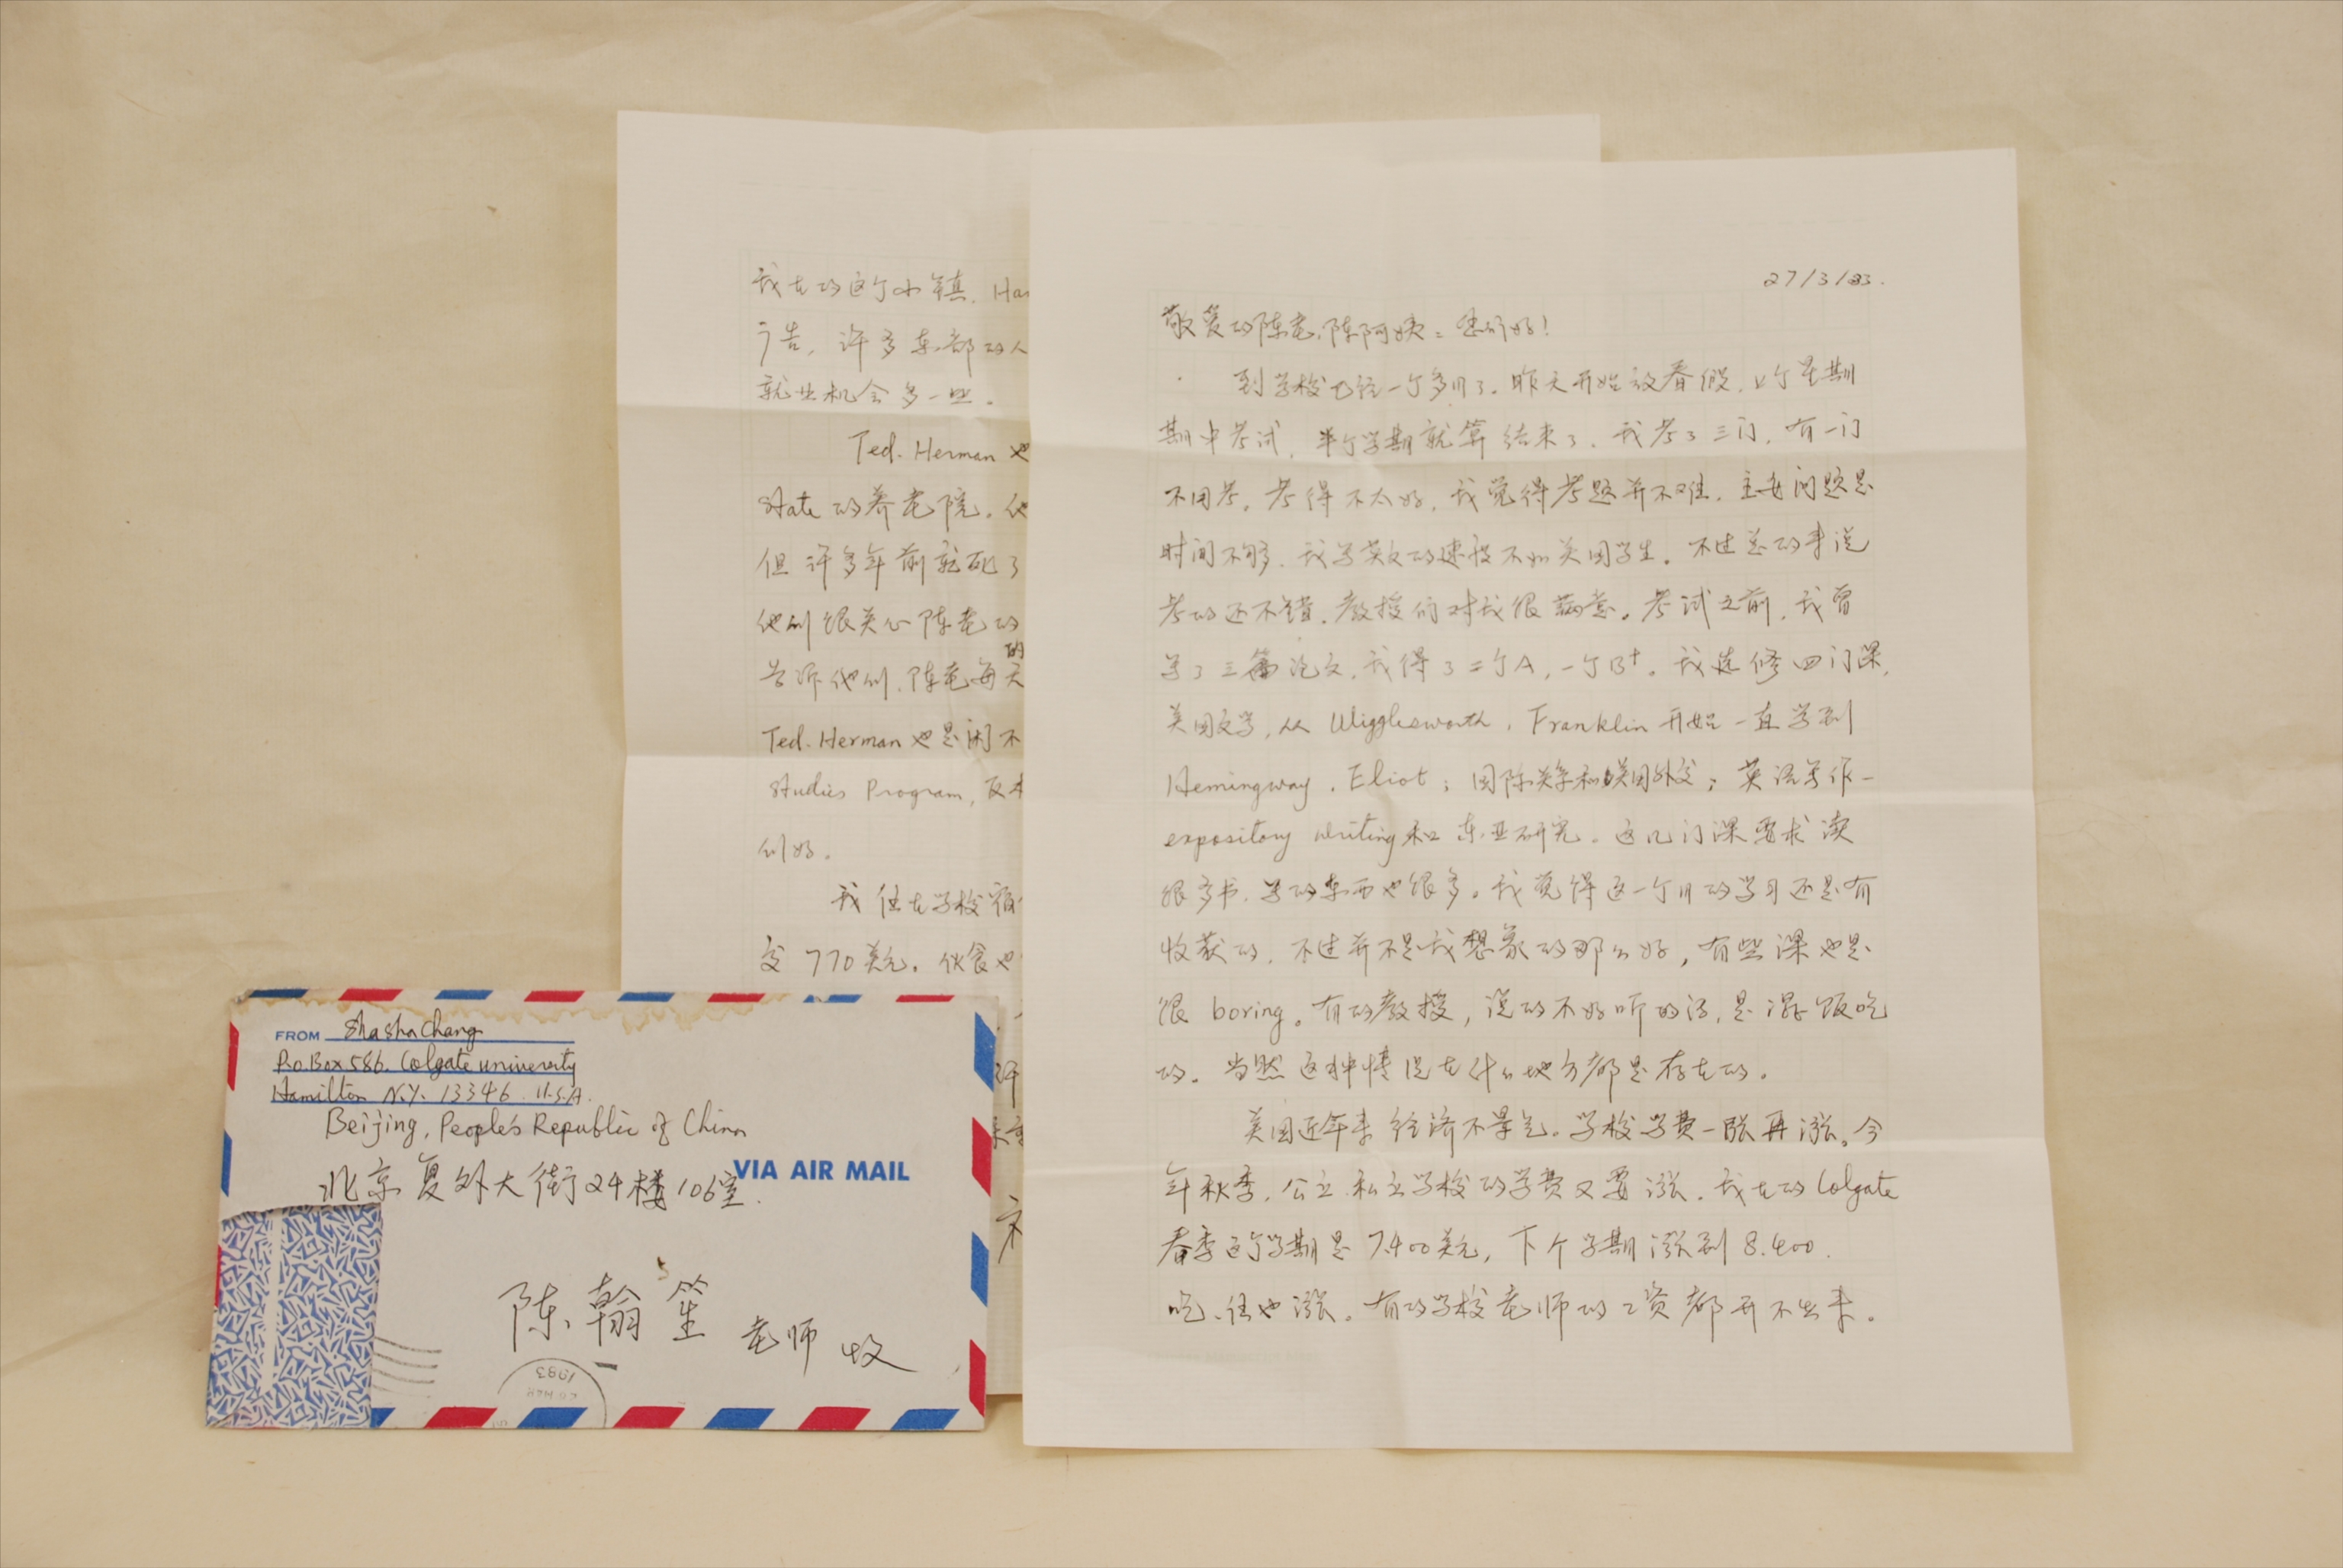 27/3/83.
敬爱的陈老、陈阿姨：您们好！
到学校已经一个多月了。昨天开始放春假，上个星期
期中考试，半个学期就算结束了。我考了三门，有一门
不用考。考得不太好，我觉得考题并不难，主要问题是
时间不够，我写英文的速度不如美国学生。不过总的来说
考的还不错，教授们对我很满意。考试之前，我曾
写了三篇论文，我得了二个A，一个B+。我选修四门课，
美国文学，从 Wigglesworth, Franklin 开始一直学到
Hemingway, Eliot；国际关系和美国外交；英语写作-
expository writing 和东亚研究。这几门课要求读
很多书，写的东西也很多。我觉得这一个月的学习还是有
收获的，不过并不是我想象的那么好，有些课也是
很 boring。有的教授，说的不好听的话，是混饭吃
的。当然这种情况在什么地方都是存在的。
美国近年来经济不景气。学校学费一张再涨。今
年秋季，公立、私立学校的学费又要涨。我在的 Colgate
春季这个学期是 7,400美元，下个学期涨到 8,400.
吃、住也涨。有的学校老师的工资都开不出来。
我在的这个小镇, Ha
广告，许多东部的人
就业机会多一些。
Ted. Herman 也
State 的养老院。他
但许多年前就死了
他们很关心陈老的
告诉他们，陈老每天的
Ted. Herman 也是闲不
Studies Program, 反
们好。
我住在学校宿
交 770 美元。伙食也
FROM Shasha Chang
P.O.Box 586. Colgate University
Hamilton N.Y. 13346 U.S.A.
Beijing, People's Republic of China
VIA AIR MAIL
北京复外大街24楼106室.
陈翰笙 老师 收
1983